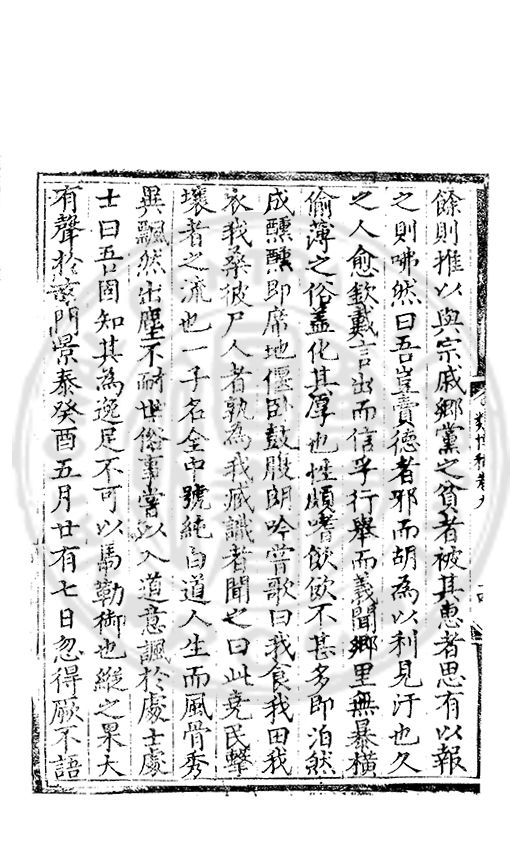 餘則推以與宗戚鄉黨之貧者被其惠者思有以報
之則咈然曰吾豈賣德者邪而胡為以利見汙也久
之人愈欽戴言出而信孚行舉而義聞鄉里無暴橫
偷薄之俗蓋化其厚也性頗嗜飲飲不甚多即泊然
成醺醺即席地偃卧鼓腹朗吟嘗歌曰我食我田我
衣我桑彼尸人者孰為我臧識者聞之曰此堯民擊
壤者之流也一子名全中號純白道人生而風骨秀
異飄然出塵不耐世俗事嘗以入道意諷於處士處
士曰吾固知其為逸足不可以馬勒御也縱之果大
有聲於玄門景泰癸酉五月廿有七日忽得厥不語
類博稿卷九
十四